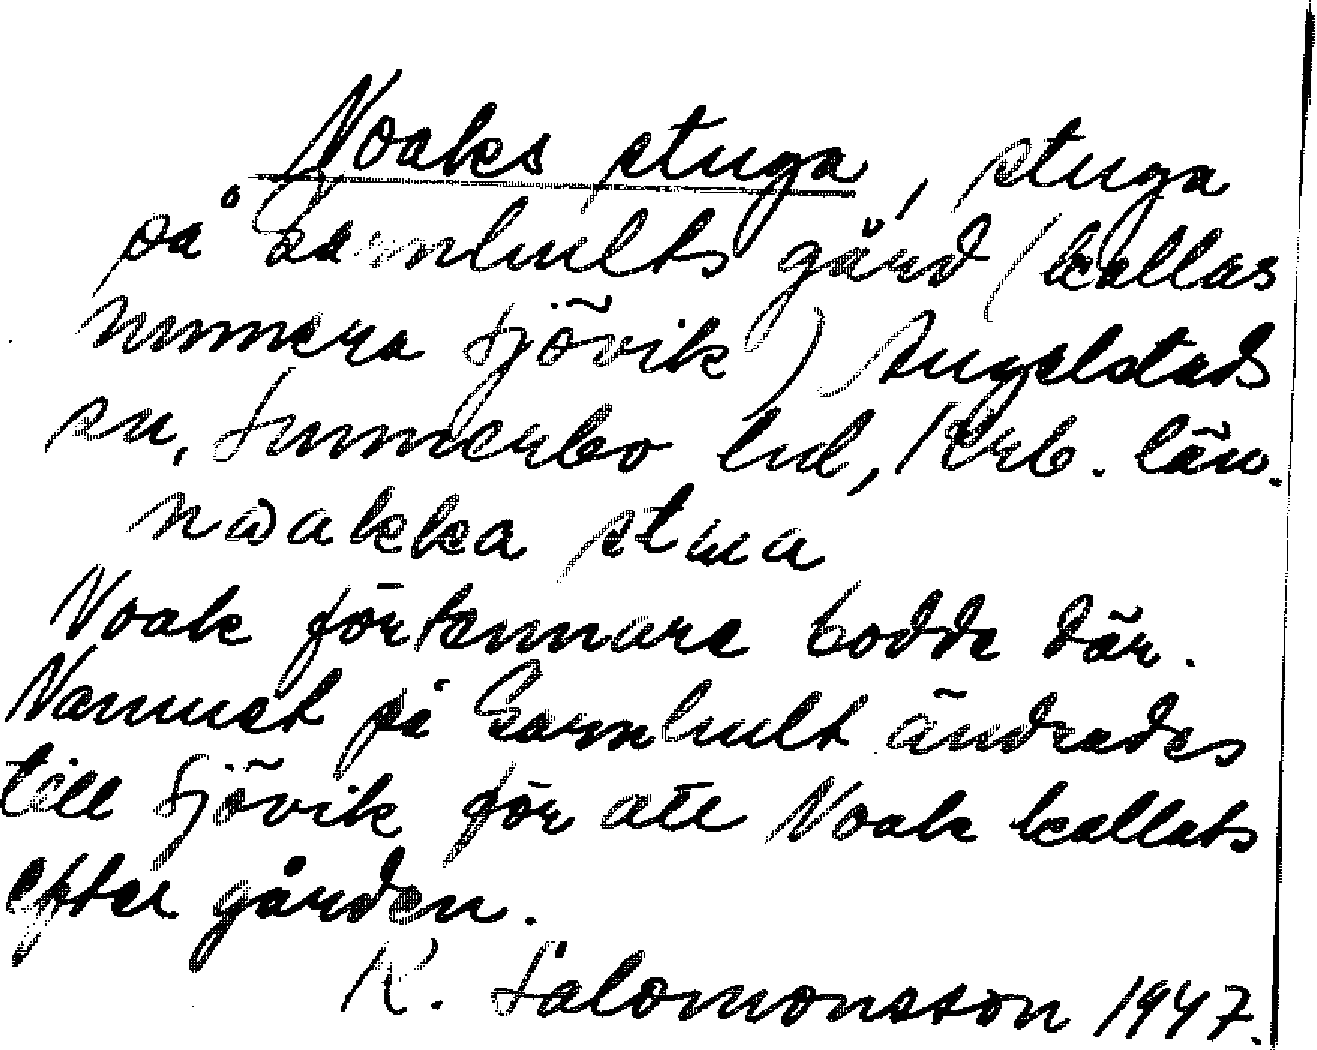 Noaks stuga, stuga
på Garnhults gård (kallas
numera Sjövik) Angelstads
sn, Sunnerbo hd, Krb. län.
nωakka stua
Noak förtennare bodde där.
Namnet på Garnhult ändrades
till Sjövik för att Noak kallats
efter gården.
K. Salomonsson 1947.